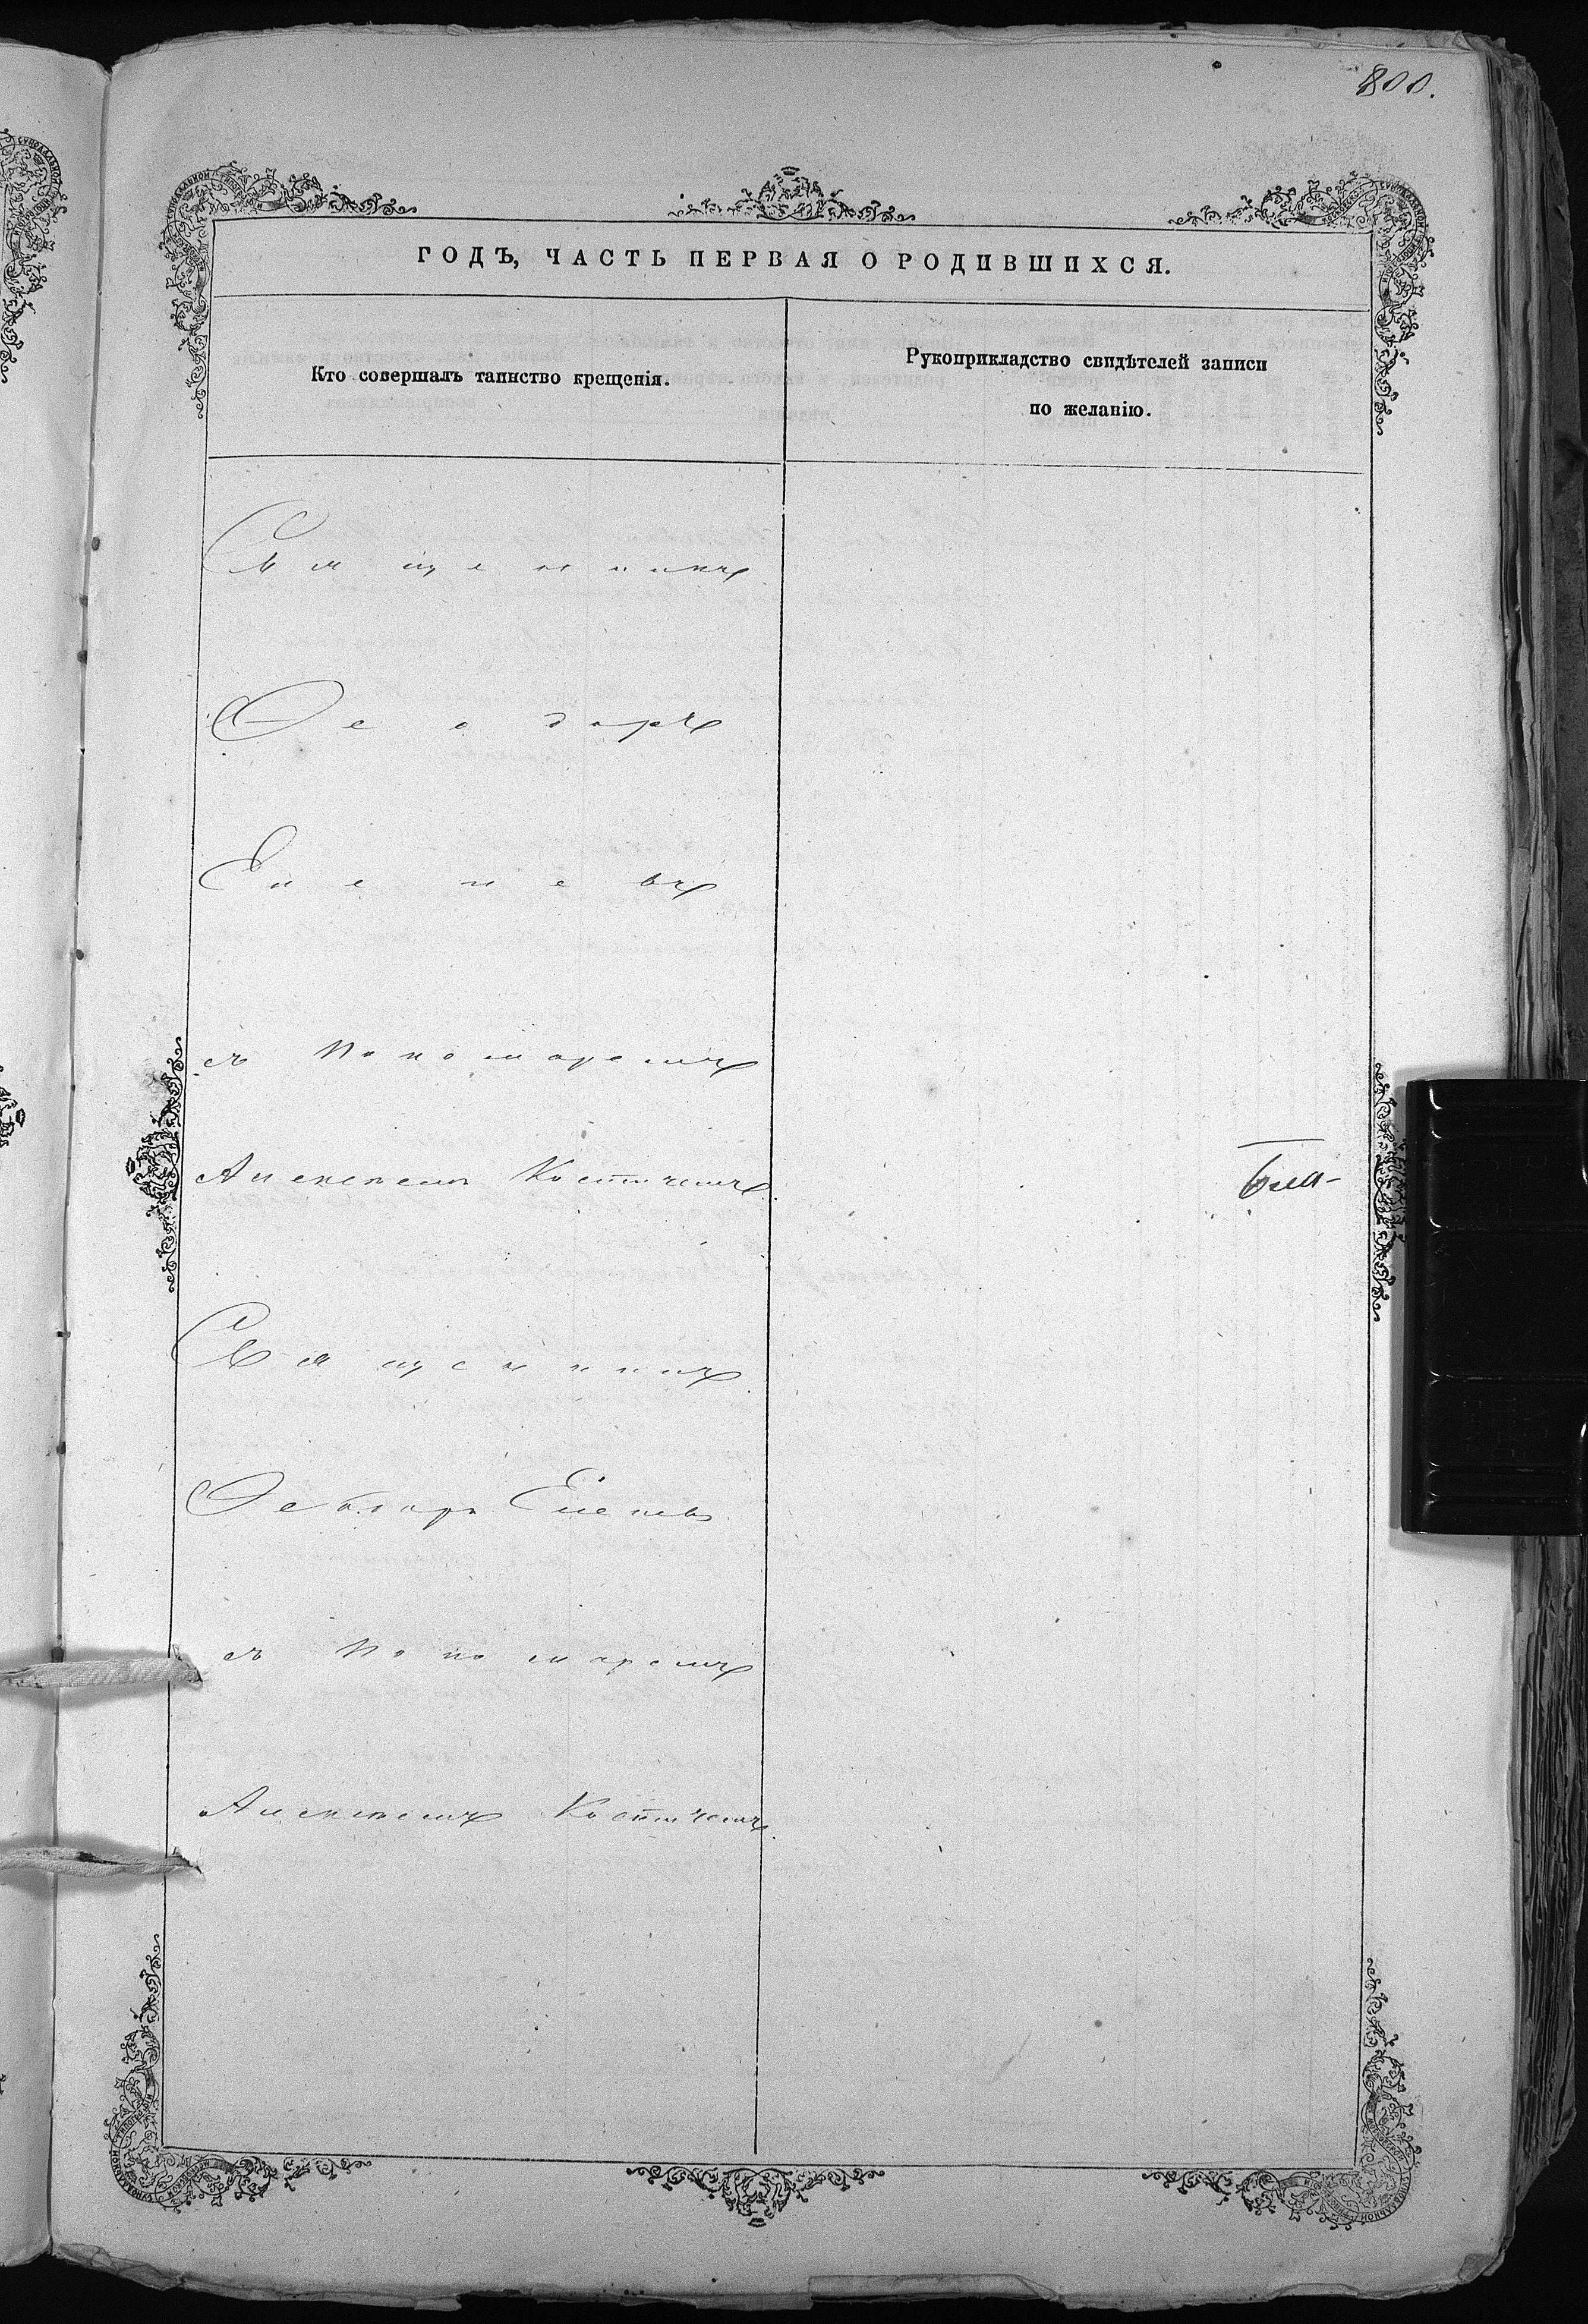 800.
ГОДЪ, ЧАСТЬ ПЕРВАЯ О РОДИВШИХСЯ.
Кто совершалъ таинство крещенія.
Рукоприкладство свидѣтелей записи
по желанію.
Священникъ
Ѳеодоръ
Еленевъ
съ Пономаремъ
Алексѣемъ Костичемъ
Священникъ
Ѳеодоръ Еленевъ
съ Пономаремъ
Алексѣемъ Костичемъ